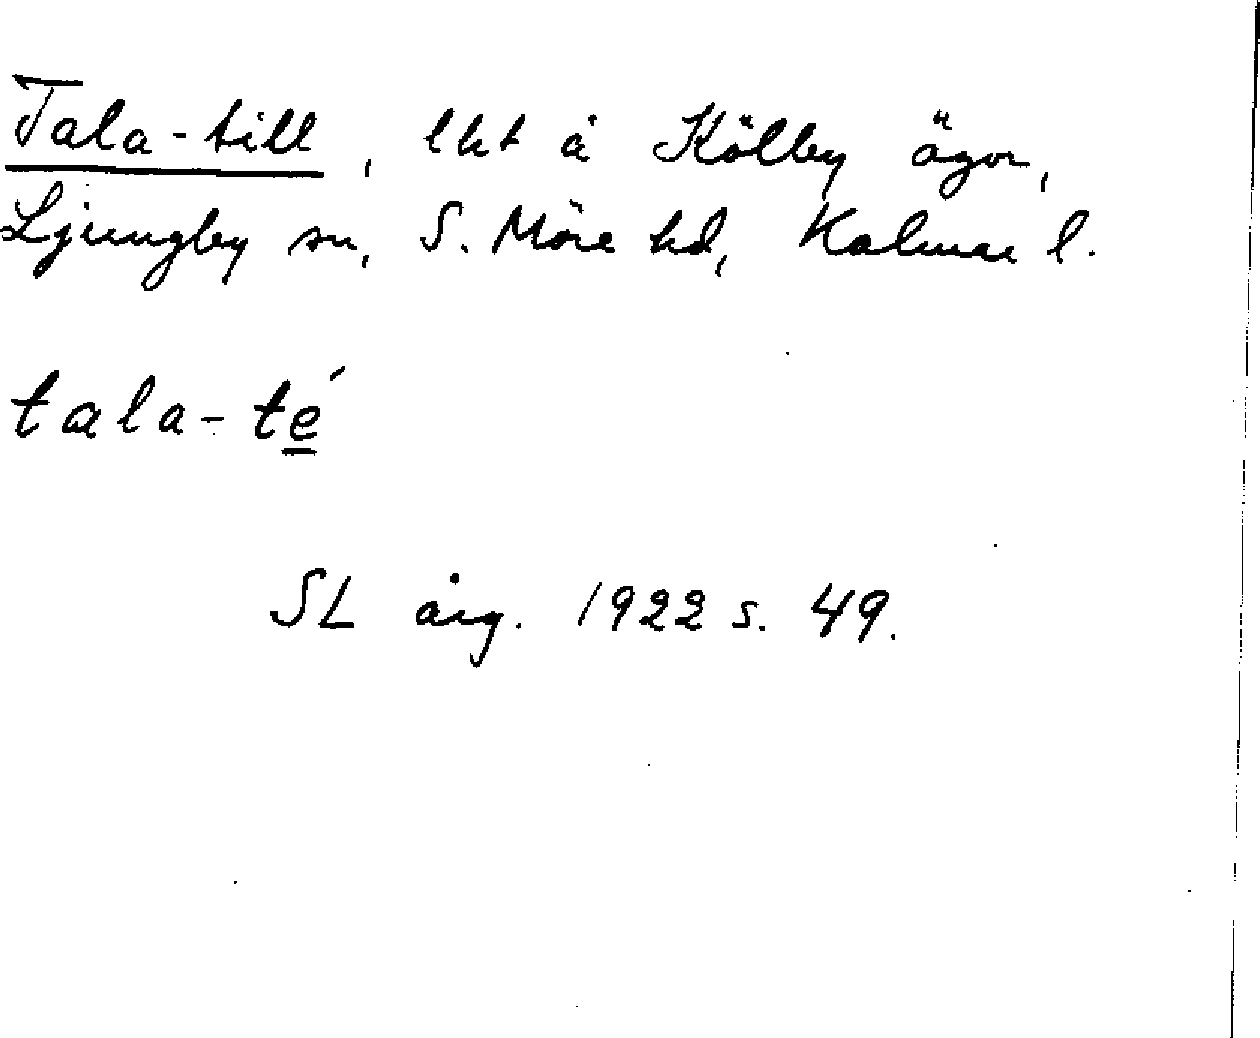 Tala-till, lht å Kölby ägor,
Ljungby sn, S. Möre hd, Kalmar l.
tala-té
SL årg. 1922 s. 49.